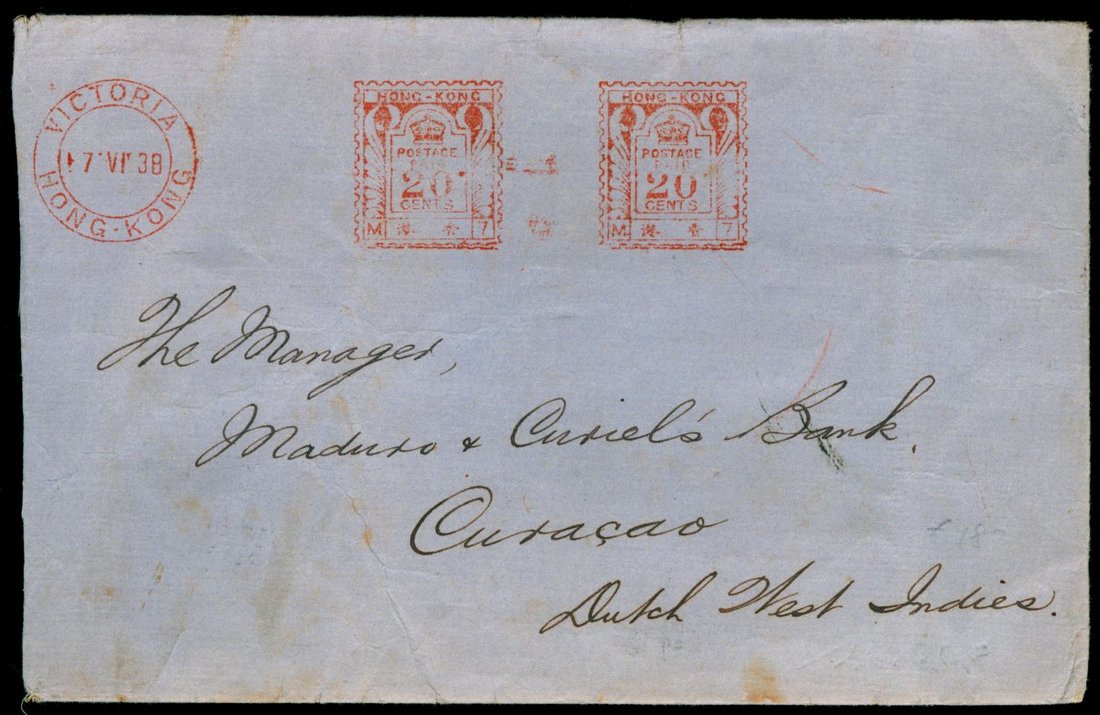 VICTORIA
17 VI 38
HONG-KONG
HONG-KONG
POSTAGE
PAID
20
CENTS
M 港 香 7
HONG-KONG
POSTAGE
PAID
20
CENTS
M 港 香 7
The Manager,
Maduro & Curiel's Bank.
Curaçao
Dutch West Indies.